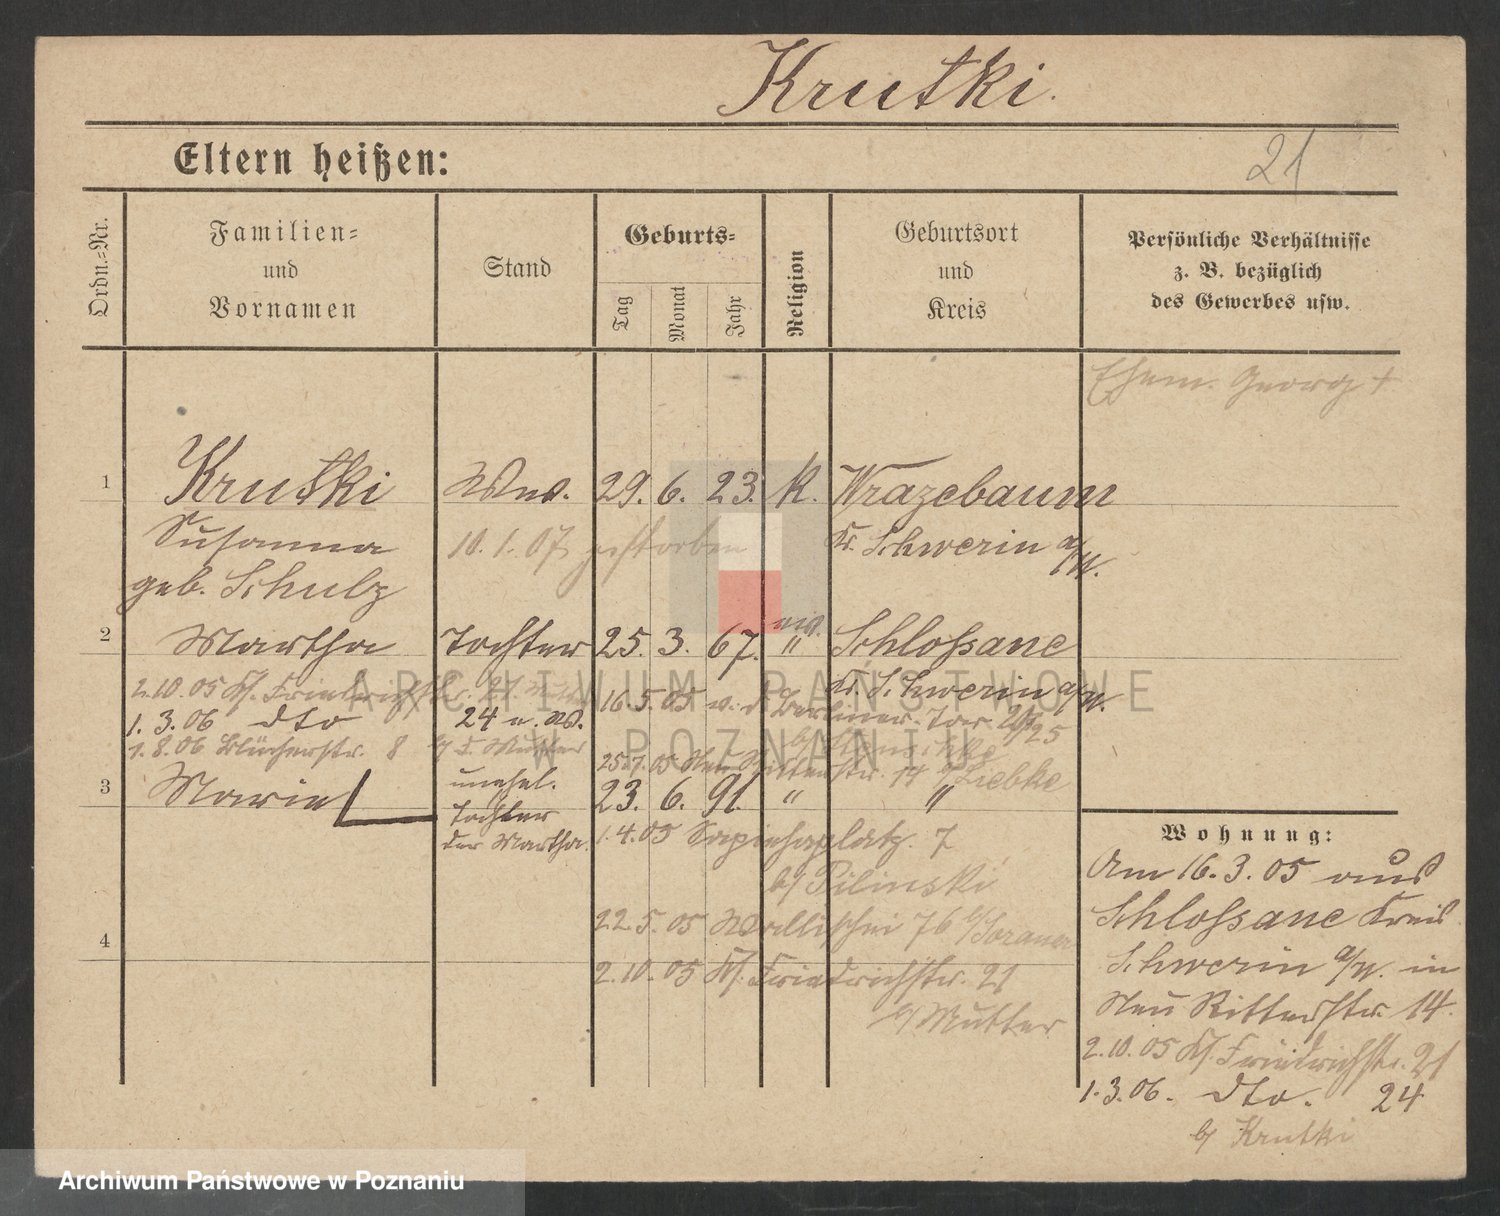 Krutki.
Eltern heißen:
21
Ordn.-Nr.
Familien-
und
Vornamen
Stand
Geburts-
Tag
Monat
Jahr
Religion
Geburtsort
und
Kreis
Persönliche Verhältnisse
z. B. bezüglich
des Gewerbes usw.
Ehem. Georg †
1
Krutki
Wwe. 29. 6. 23. K. Wrazebaum
Susanna
10. 1. 07 gestorben
Kr. Schwerin a/W.
geb. Schulz
2
Martha
Tochter 25. 3. 67. " Schlossane
Kr. Schwerin a/W.
2.10.05 Kl. Friedrichstr. 21
16.5.05 Berliner
1.3.06 dto 24
1.8.06 Blücherstr. 8 b/ d. Mutter
25.7.05 Neu Ritterstr. 14 b/ Liebke
3
Marie
unehel.
Tochter
der Martha.
23. 6. 91. " "
1.4.05 Sapiehaplatz. 7
b/ Pilinski
22.5.05 Wallischei 76
4
2.10.05 Kl. Friedrichstr. 21
b/ Mutter
Wohnung:
Am 16.3.05 aus
Schlossane Kreis
Schwerin a/W. in
Neu Ritterstr. 14.
2.10.05 Kl. Friedrichstr. 21
1.3.06. dto. 24
b/ Krutki
ARCHIWUM PAŃSTWOWE
W POZNANIU
Archiwum Państwowe w Poznaniu